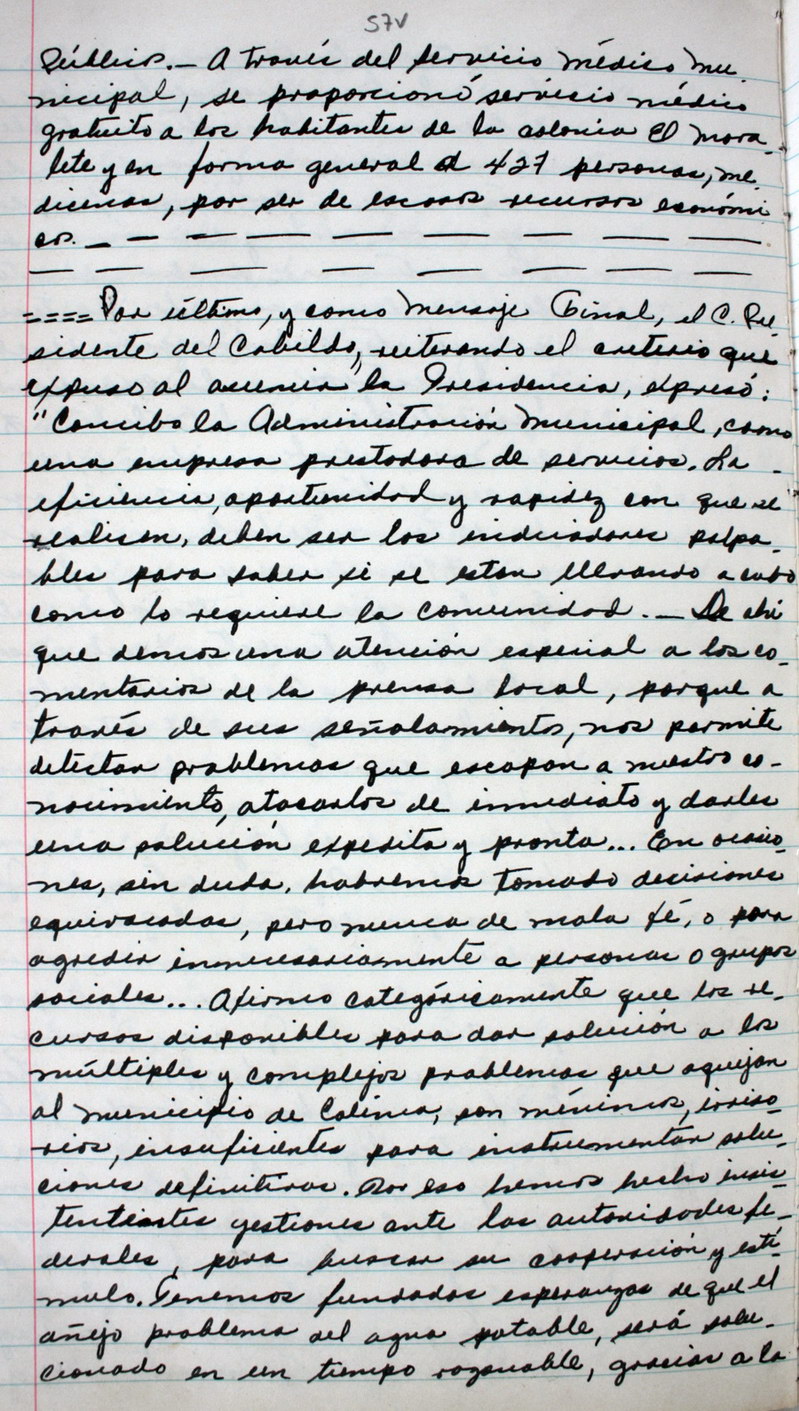 57v
Público.— A través del servicio médico mu-
nicipal, se proporcionó servicio médico
gratuito a los habitantes de la colonia El Mora-
lete y en forma general a 427 personas, me-
dicinas, por ser de escasos recursos económi
cos. — — — — — — — —
— — — — — — — —
==== Por último, y como mensaje final, el C. Pre-
sidente del Cabildo, reiterando el criterio que
expuso al asumir la Presidencia, expresó:
"Concibo la Administración Municipal, como
una empresa prestadora de servicios. La
eficiencia, oportunidad y rapidez con que se
realicen, deben ser los indicadores palpa-
bles para saber si se estan llevando a cabo
como lo requiere la comunidad. — De ahí
que demos una atención especial a los co-
mentarios de la prensa local, porque a
través de sus señalamientos, nos permite
detectar problemas que escapan a nuestro co-
nocimiento, atacarlos de inmediato y darles
una solución expedita y pronta... En ocasio-
nes, sin duda, habremos tomado decisiones
equivocadas, pero nunca de mala fé, o para
agredir innecesariamente a personas o grupos
sociales... Afirmo categóricamente que los re-
cursos disponibles para dar solución a los
múltiples y complejos problemas que aquejan
al Municipio de Colima, son mínimos, irriso-
rios, insuficientes para instrumentar solu-
ciones definitivas. Por eso hemos hecho insis-
tentes gestiones ante las autoridades fe-
derales, para buscar su cooperación y estí-
mulo. Tenemos fundadas esperanzas de que el
añejo problema del agua potable, será solu-
cionado en un tiempo razonable, gracias a la